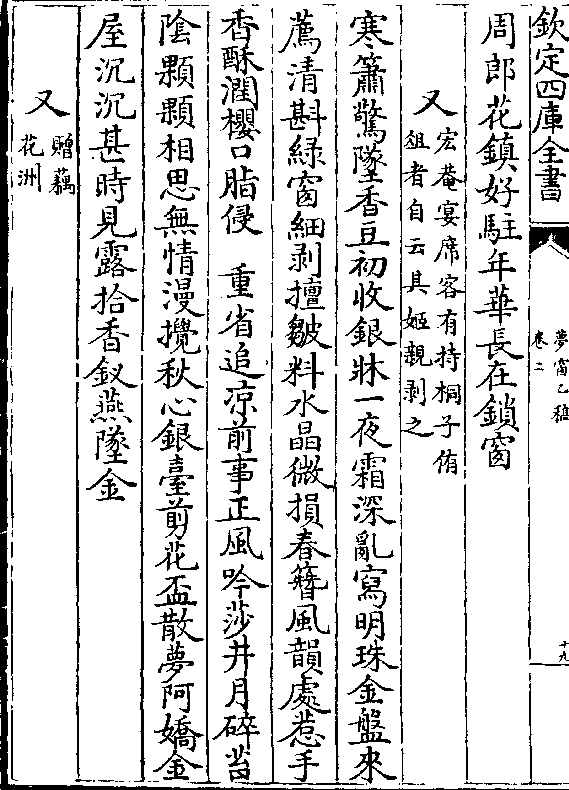 欽定四庫全書
夢窗乙稿
卷二
十九
周郎花鎮好駐年華長在鎖窗
又
宏菴宴席客有持桐子侑
俎者自云其姬親剥之
寒簫驚墜香豆初收銀牀一夜霜深亂寫明珠金盤來
薦清斟綠窗細剥擅皺料水晶微損春簪風韻處惹手
香酥潤櫻口脂侵　重省追凉前事正風吟莎井月碎苔
陰顆顆相思無情漫攪秋心銀臺剪花盃散夢阿嬌金
屋沉沉甚時見露拾香釵燕墜金
又
贈藕
花洲